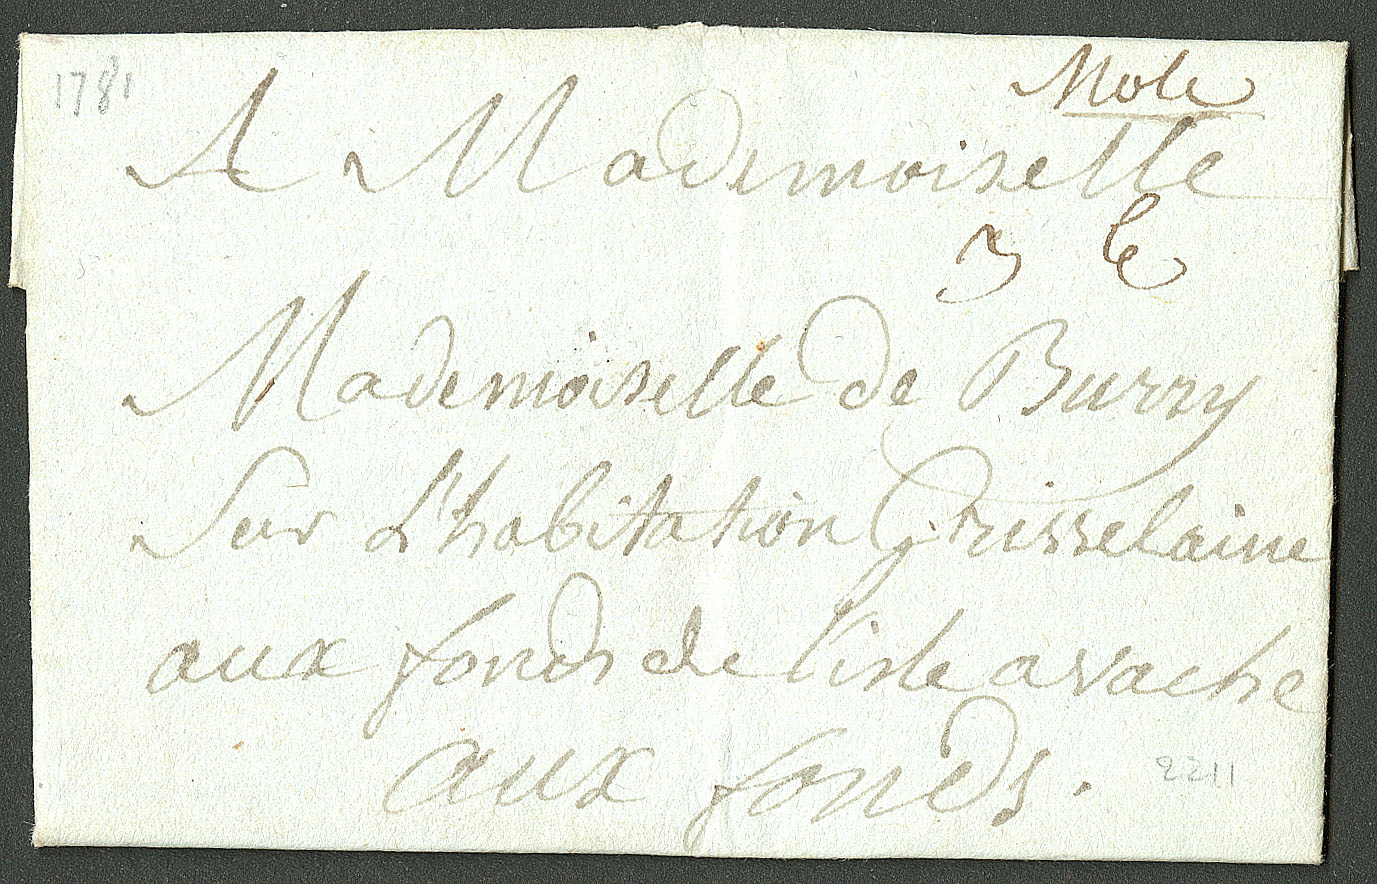 1781
Mole
A Mademoiselle
3 le
Mademoiselle de Burry
Sur L'habitation Grisselaine
aux fonds de l'isle avache
aux fonds.
2211